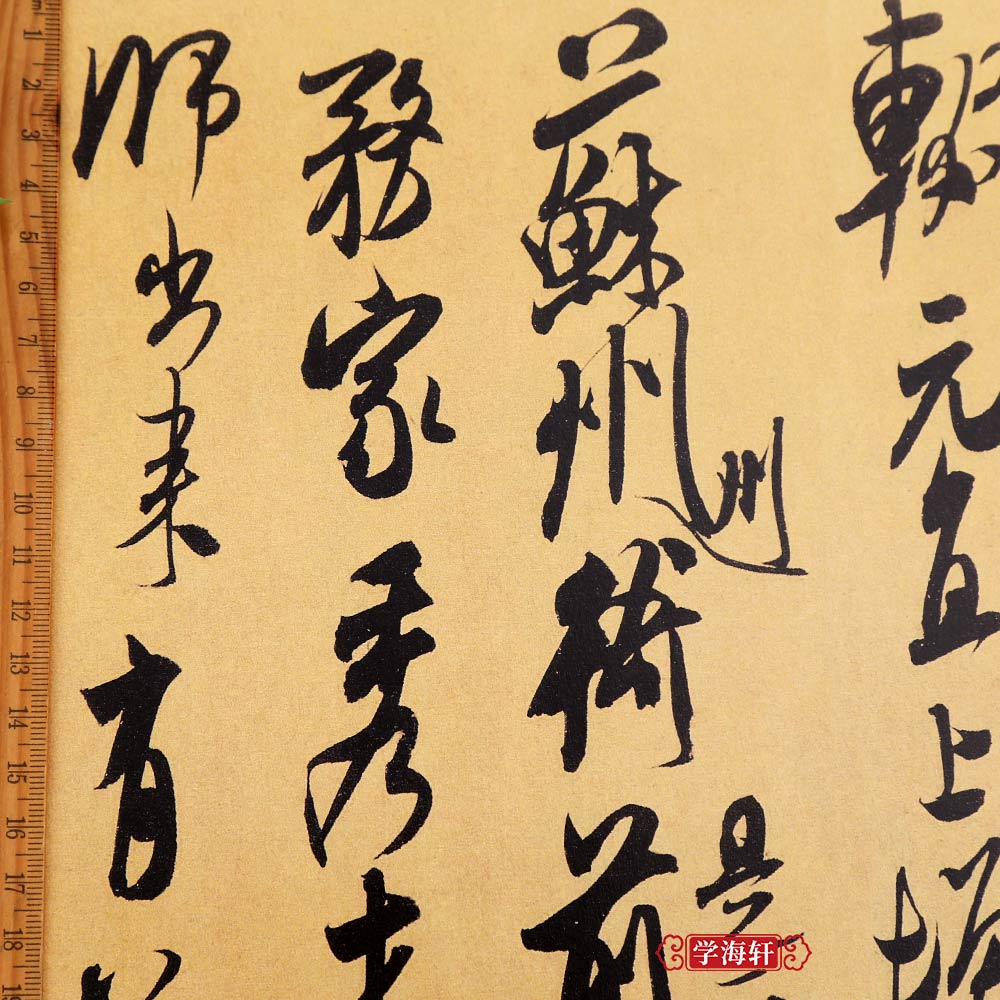 元直上
州
蘇州衙前
務家秀
師出来有
学海轩
1 2 3 4 5 6 7 8 9 10 11 12 13 14 15 16 17 18